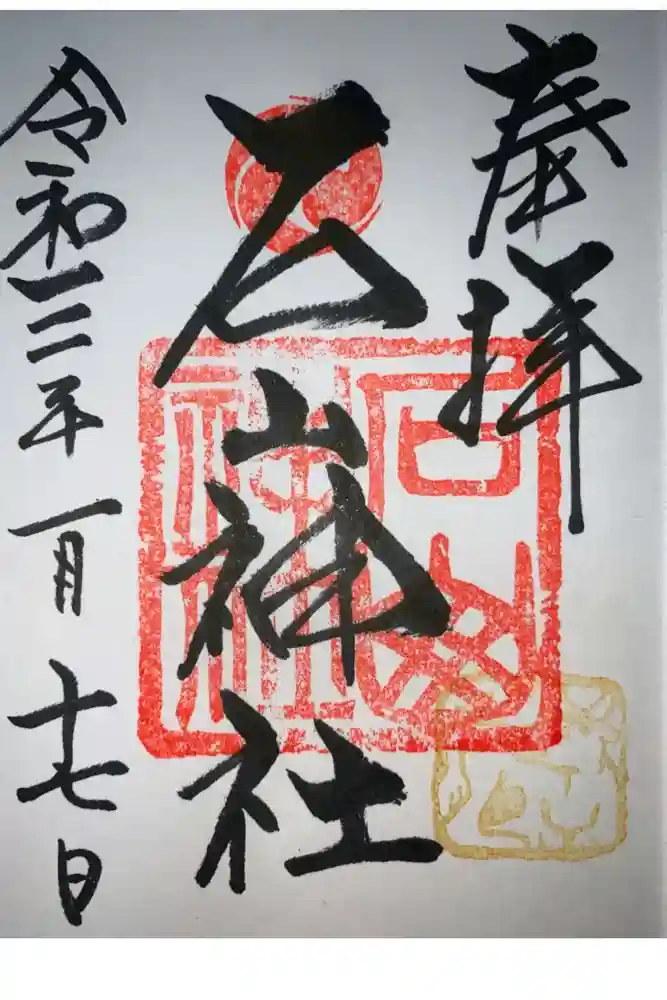 奉拝
石山神社
令和三年一月十七日